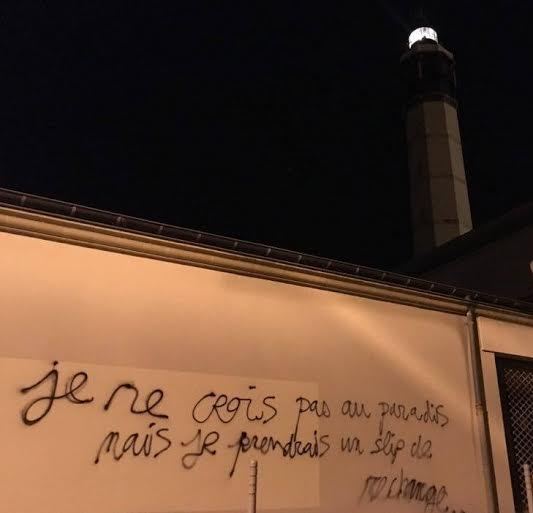 je ne crois pas au paradis
mais je prendrais un slip de
rechange...